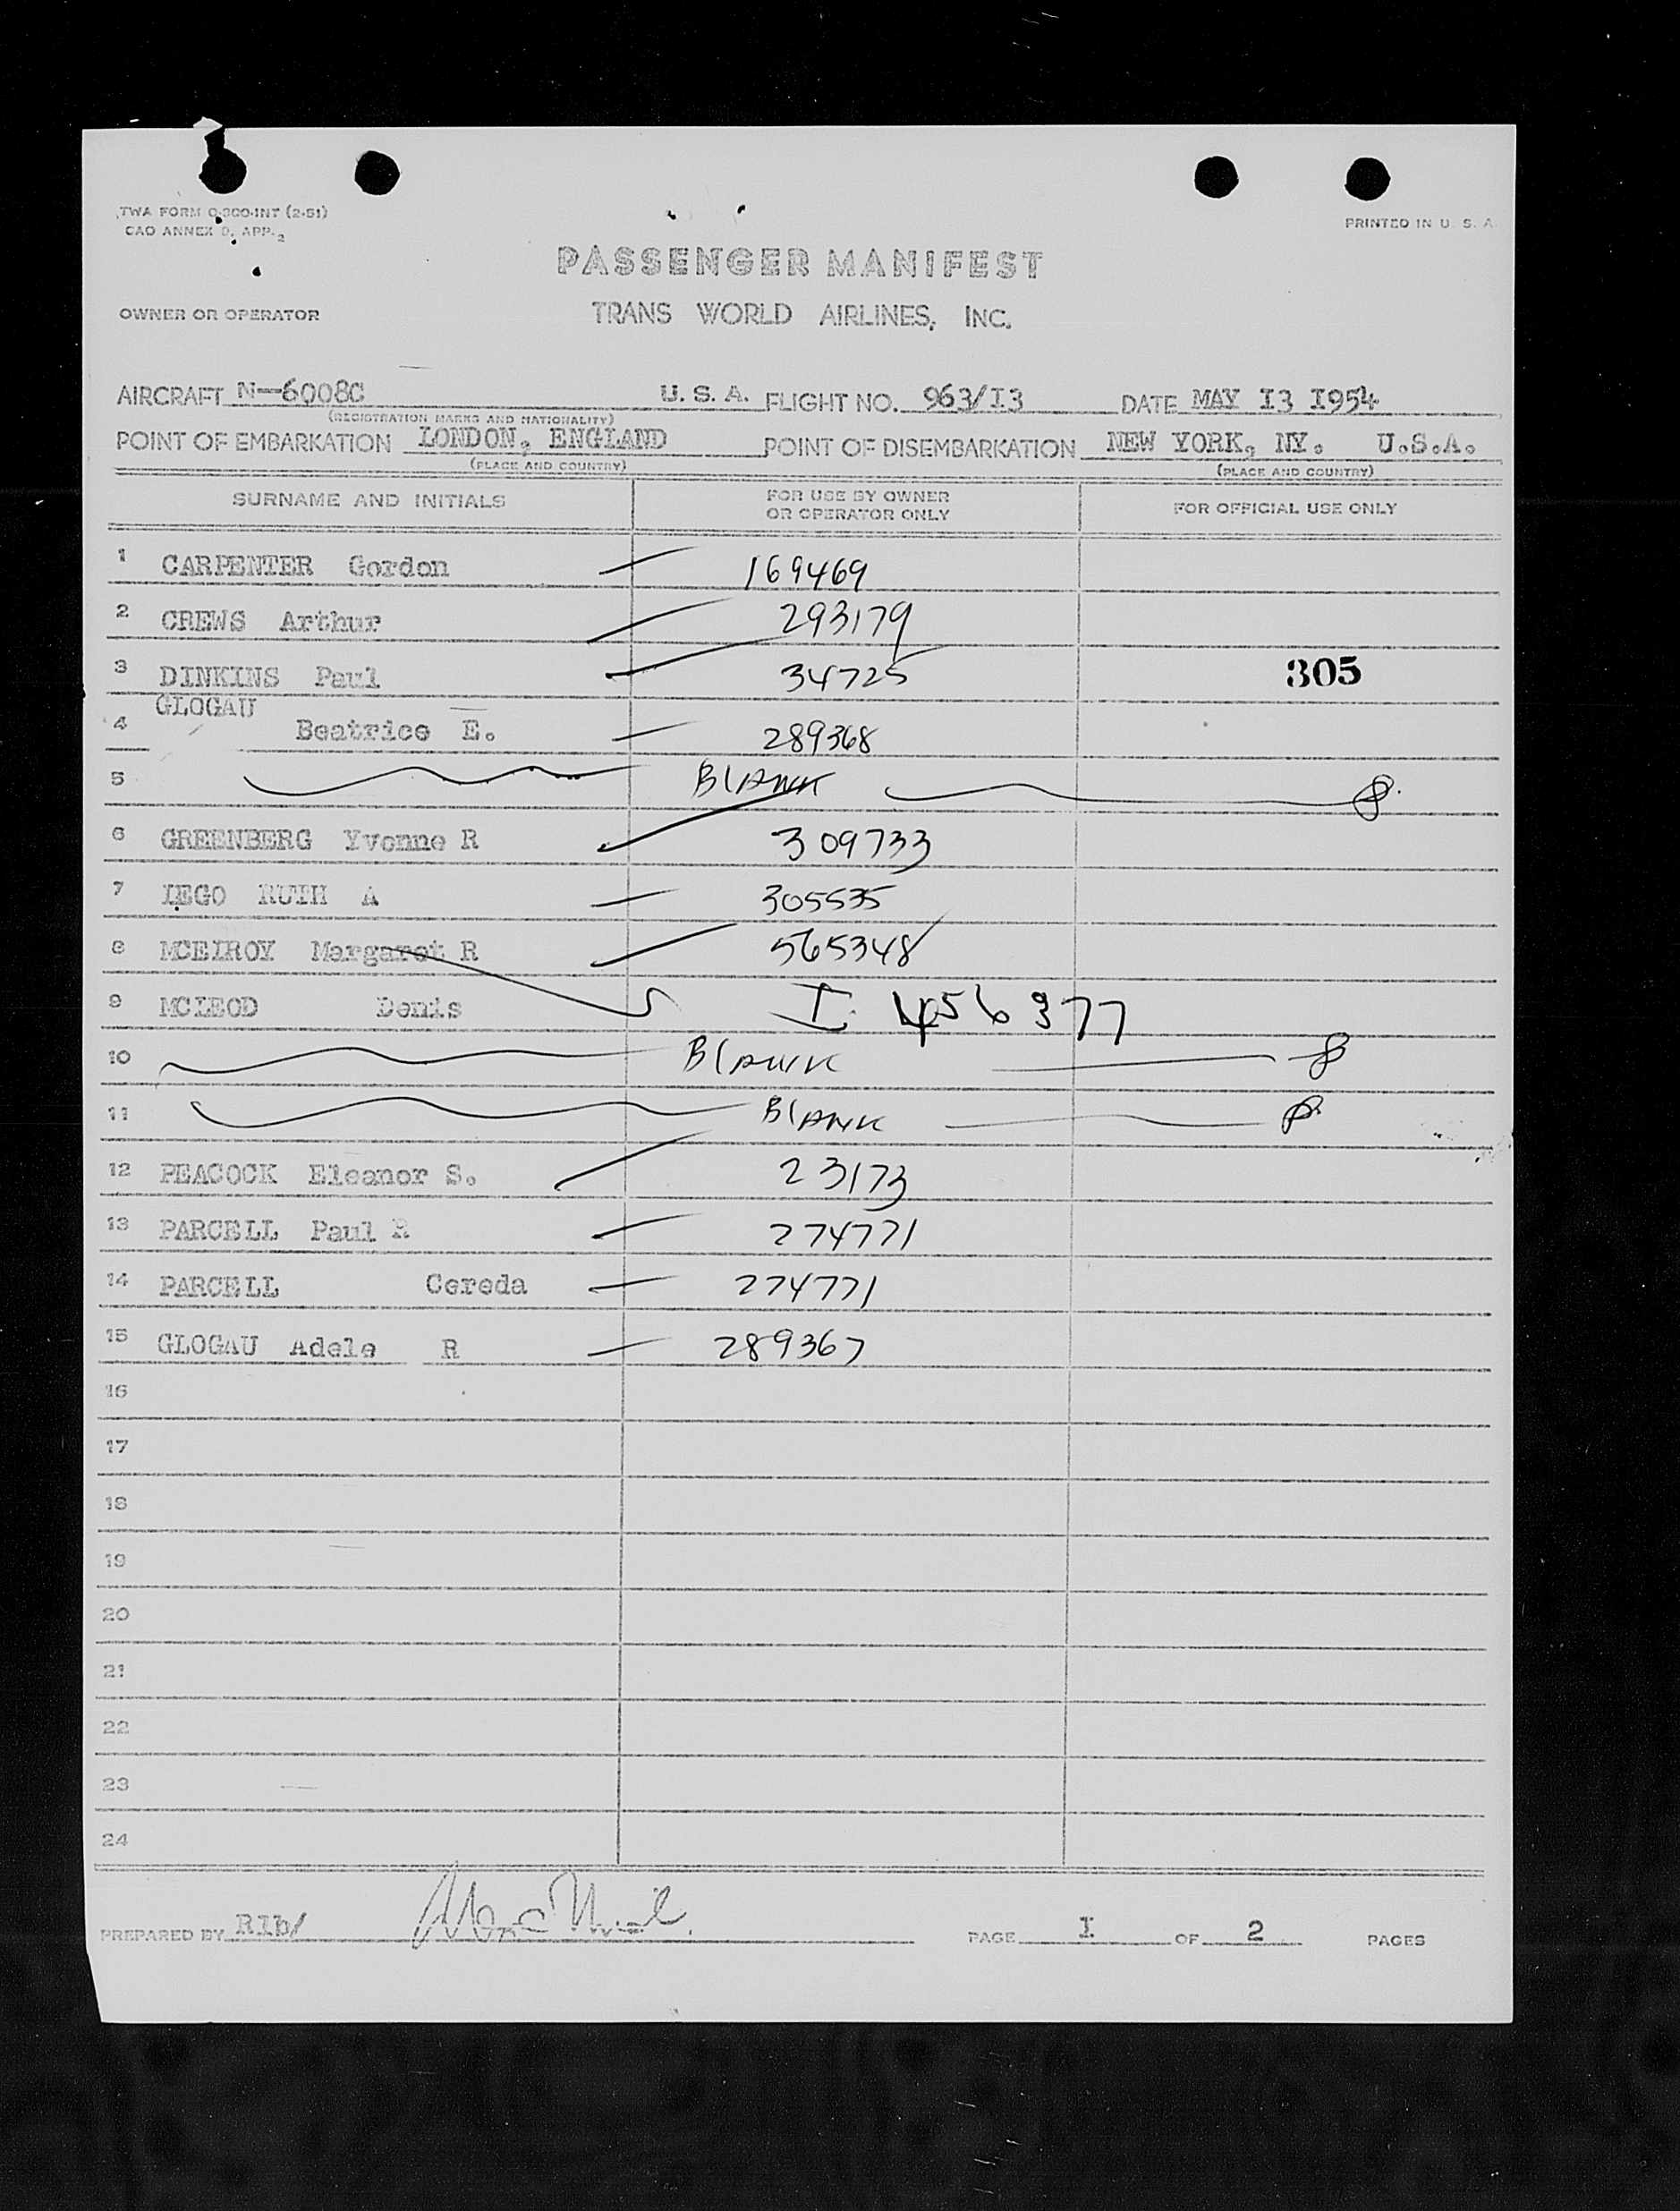 TWA FORM O-300-INT (2-51)
CAO ANNEX 9, APP. 2
PRINTED IN U. S. A.
PASSENGER MANIFEST
OWNER OR OPERATOR TRANS WORLD AIRLINES, INC.
AIRCRAFT N-6008C U. S. A. FLIGHT NO. 963/I3 DATE MAY I3 I954
(REGISTRATION MARKS AND NATIONALITY)
POINT OF EMBARKATION LONDON, ENGLAND POINT OF DISEMBARKATION NEW YORK, NY. U.S.A.
(PLACE AND COUNTRY) (PLACE AND COUNTRY)
SURNAME AND INITIALS FOR USE BY OWNER OR OPERATOR ONLY FOR OFFICIAL USE ONLY
1 CARPENTER Gordon 169469
2 CREWS Arthur 293179
3 DINKINS Paul 34725 305
GLOGAU
4 Beatrice E. 289368
5 BLANK
6 GREENBERG Yvonne R 309733
7 IEGO RUTH A 305535
8 MCElROY Margaret R 565348
9 MCLEOD Denis I 456377
10 BLANK
11 BLANK
12 PEACOCK Eleanor S. 23173
13 PARCELL Paul R 274771
14 PARCELL Cereda 274771
15 GLOGAU Adele R 289367
16
17
18
19
20
21
22
23
24
PREPARED BY RIb/ PAGE I OF 2 PAGES